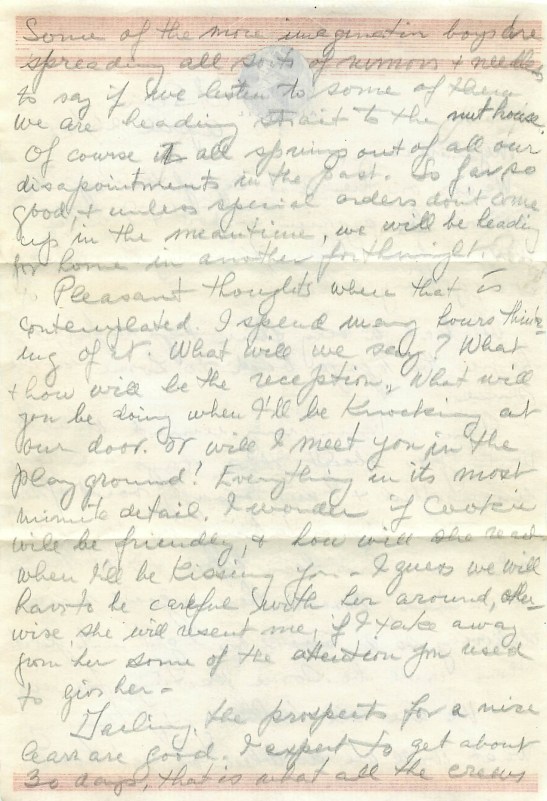 Some of the more imaginatin boys are
spreading all sorts of rumors + needless
to say if we listen to some of them
we are heading strait to the nut house.
Of course it all springs out of all our
disapointments in the past. So far so
good, + unless special orders don't come
up, in the meantime, we will be heading
for home in another forthnight.
Pleasant thoughts when that is
contemplated. I spend many hours think-
ing of it. What will we say? What
+ how will be the reception, What will
you be doing when I'll be Knocking at
our door. or will I meet you in the
playground? Everything in its most
minute detail. I wonder if Cookie
will be friendly, + how will she react
when I'll be Kissing you - I guess we will
have to be careful with her around, other-
wise she will resent me, if I take away
from her some of the attention you used
to give her -
Darling, the prospects for a nice
leave are good. I expect to get about
30 days, that is what all the crews